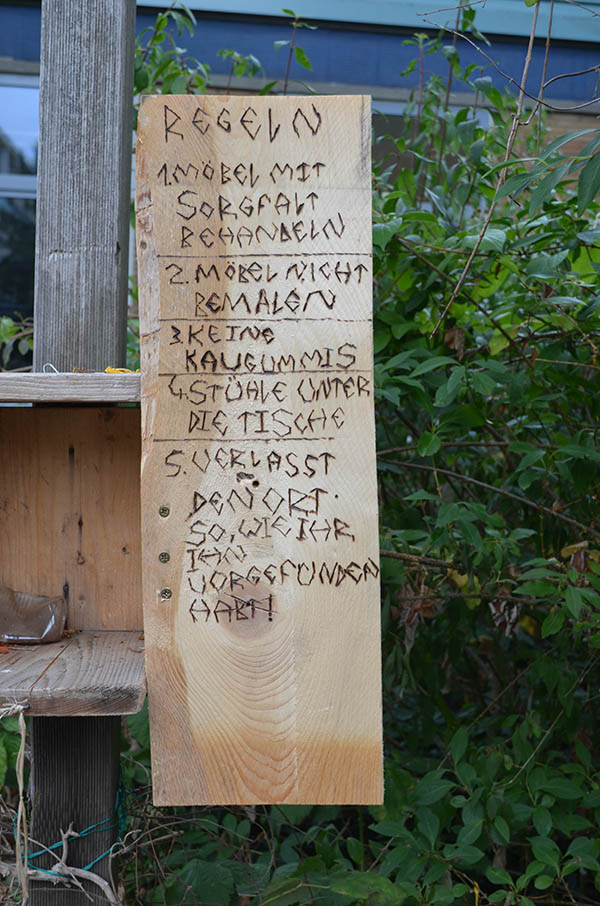 REGELN
1. MÖBEL MIT
SORGFALT
BEHANDELN
2. MÖBEL NICHT
BEMALEN
3. KEINE
KAUGUMMIS
4. STÜHLE UNTER
DIE TISCHE
5. VERLASST
DEN ORT
SO, WIE IHR
IHN
VORGEFUNDEN
HABT!